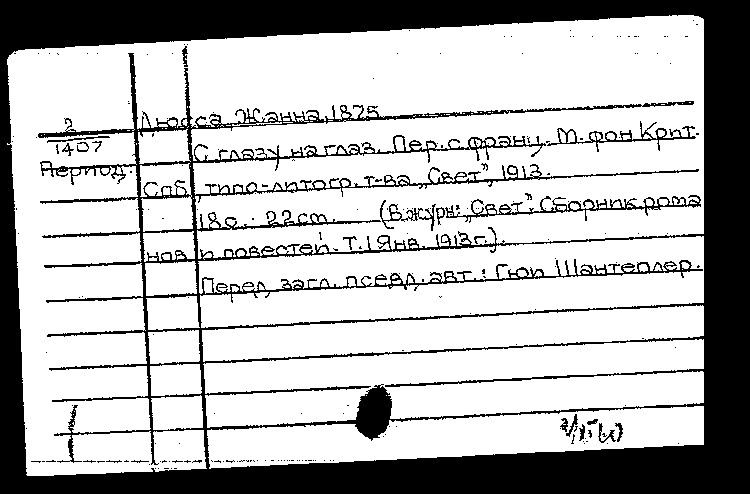 2
1407
Период.
Дюсса, Жанна, 1875
С глазу на глаз. Пер. с франц. М. фон Крит.
Спб., типо-литогр. т-ва „Свет”, 1913.
18 с. 22 см. (В журн: „Свет”. Сборник рома
нов и повестей. Т. I Янв. 1913 г.).
Перед загл. псевд. авт.: Гюи Шантеплер.